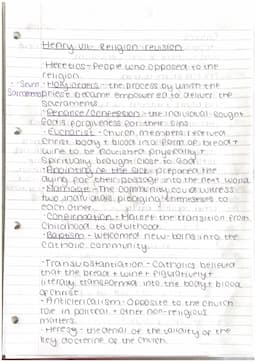 Henry VII - Religion revision
· Heretics - People who opposed to the
religion.
- Seven · Holy orders - the process by which the
Sacraments priest became empowered to deliver the
sacraments.
· Penance/Confession - the individual sought
God's forgiveness for their sins
· Eucharist - Church members received
Christ body + blood in a form of bread +
wine to be nourished physically +
Spiritually brought close to God.
· Anointing of the Sick - prepared the
dying for their passage into the next world.
· Marriage - The community could witness
two individuals pledging themselves to
each other.
· Confirmation - Marked the transition from
Childhood to adulthood.
· Baptism - welcomed new-borns into the
Catholic community.
· Transubstantiation - Catholics believed
that the bread + wine + figuratively +
literally transformed into the body + blood
of Christ.
· Anticlericalism - Opposite to the church
role in political + other non-religious
matters.
· Heresy - the denial of the validity of the
key doctrine of the church.